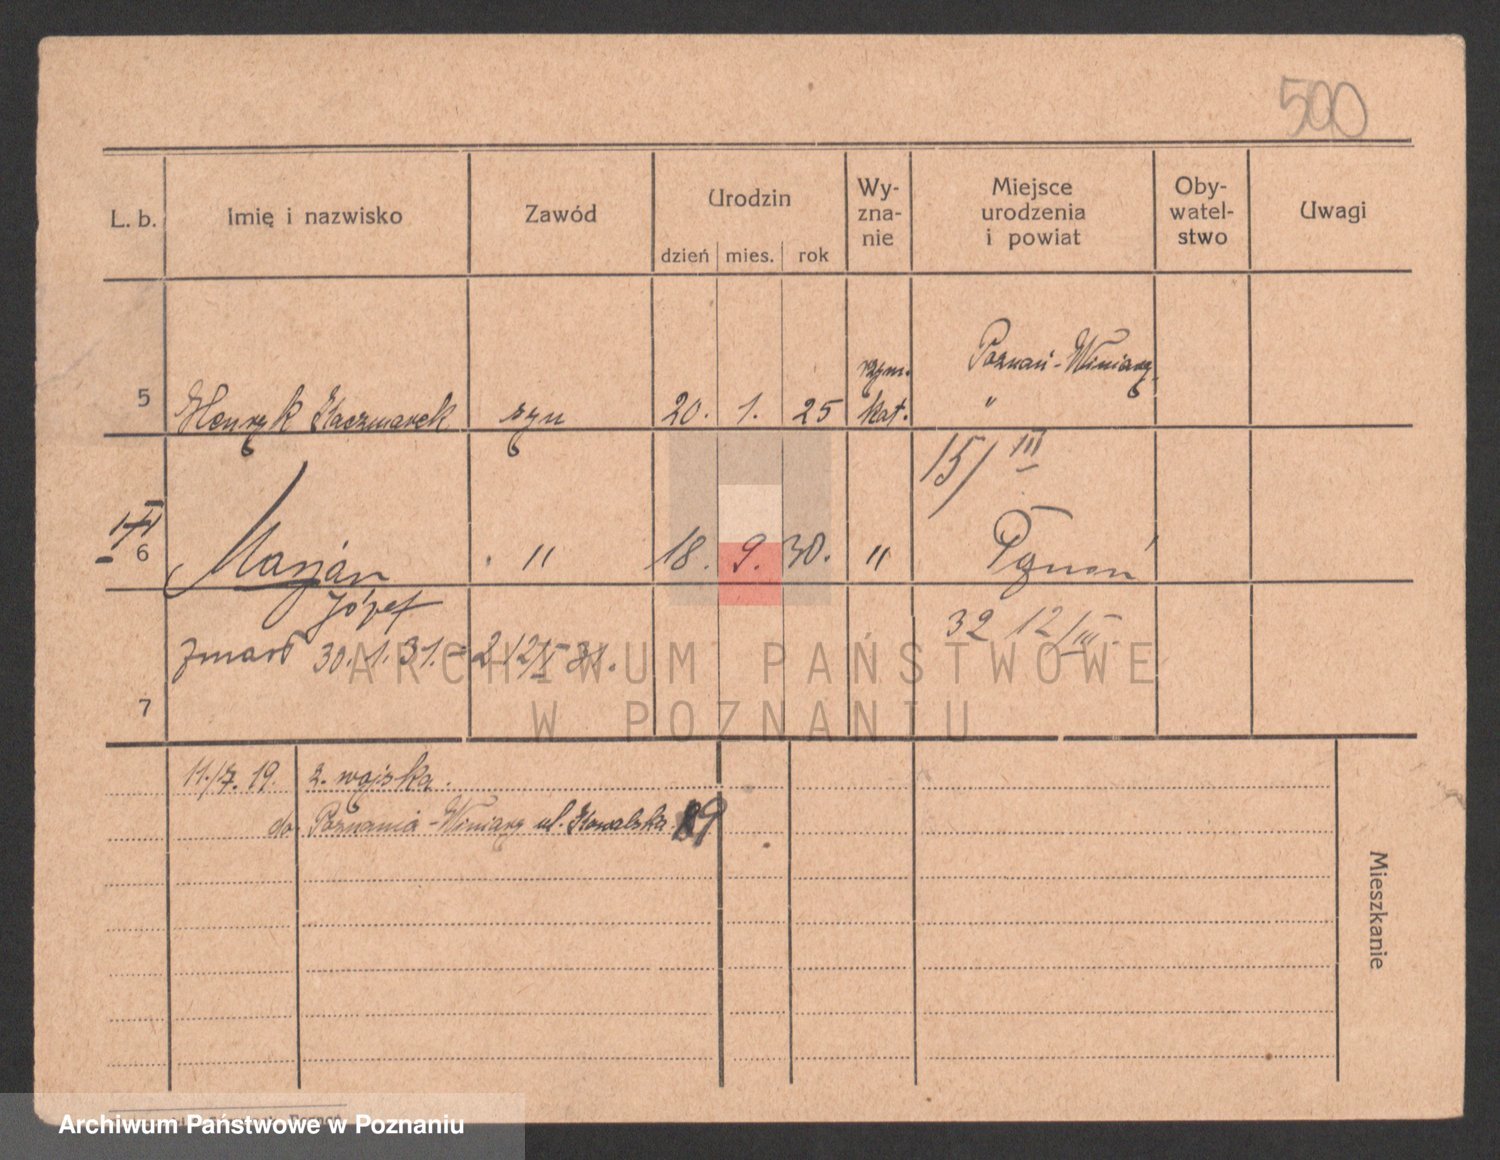 500
L. b. Imię i nazwisko Zawód Urodzin Wy-zna-nie Miejsce urodzenia i powiat Oby-watel-stwo Uwagi
dzień mies. rok
5 Henryk Kaczmarek syn 20. 1. 25 rzym. kat. Poznań-Winiary
"
15/III
6 Marjan " 18. 9. 30. " Poznań
Józef
32 12/III.
zmarł 30.1.31. = 2 12/I 31.
7
11./7. 19. z wojska.
do Poznania-Winiary ul. Kowalska 19
Mieszkanie
ARCHIWUM PAŃSTWOWE
W POZNANIU
Archiwum Państwowe w Poznaniu